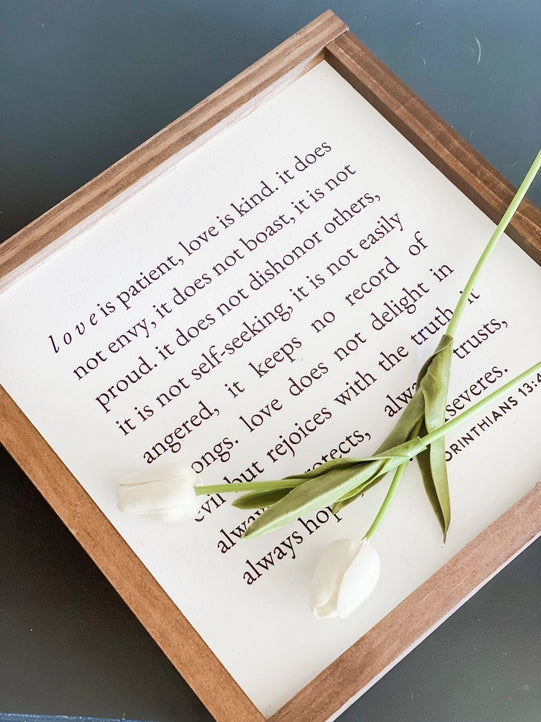 love is patient, love is kind. it does
not envy, it does not boast, it is not
proud. it does not dishonor others,
it is not self-seeking, it is not easily
angered, it keeps no record of
ongs. love does not delight in
evil but rejoices with the truth. it
always protects, alw trusts,
always hop severes.
ORINTHIANS 13:4